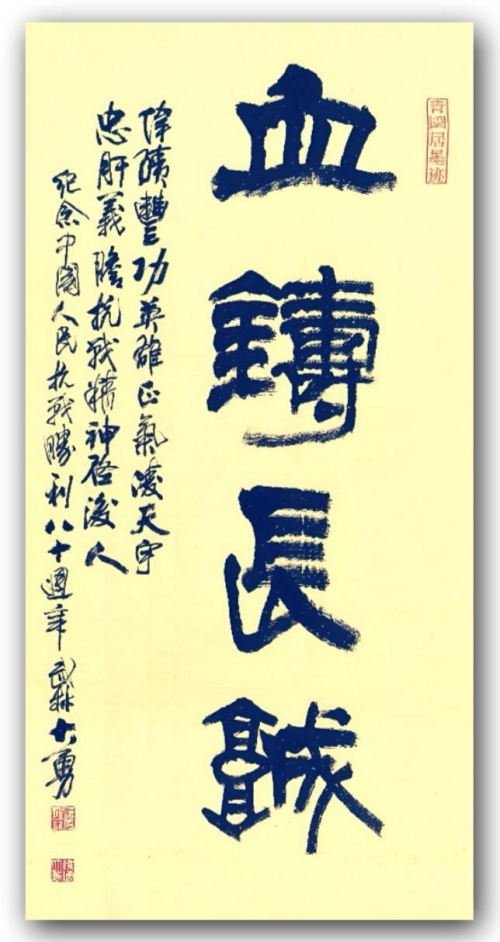 血鑄長城
偉績豐功英雄正氣凌天宇
忠肝義膽抗戰精神啓後人
紀念中國人民抗戰勝利八十週年 武林大勇